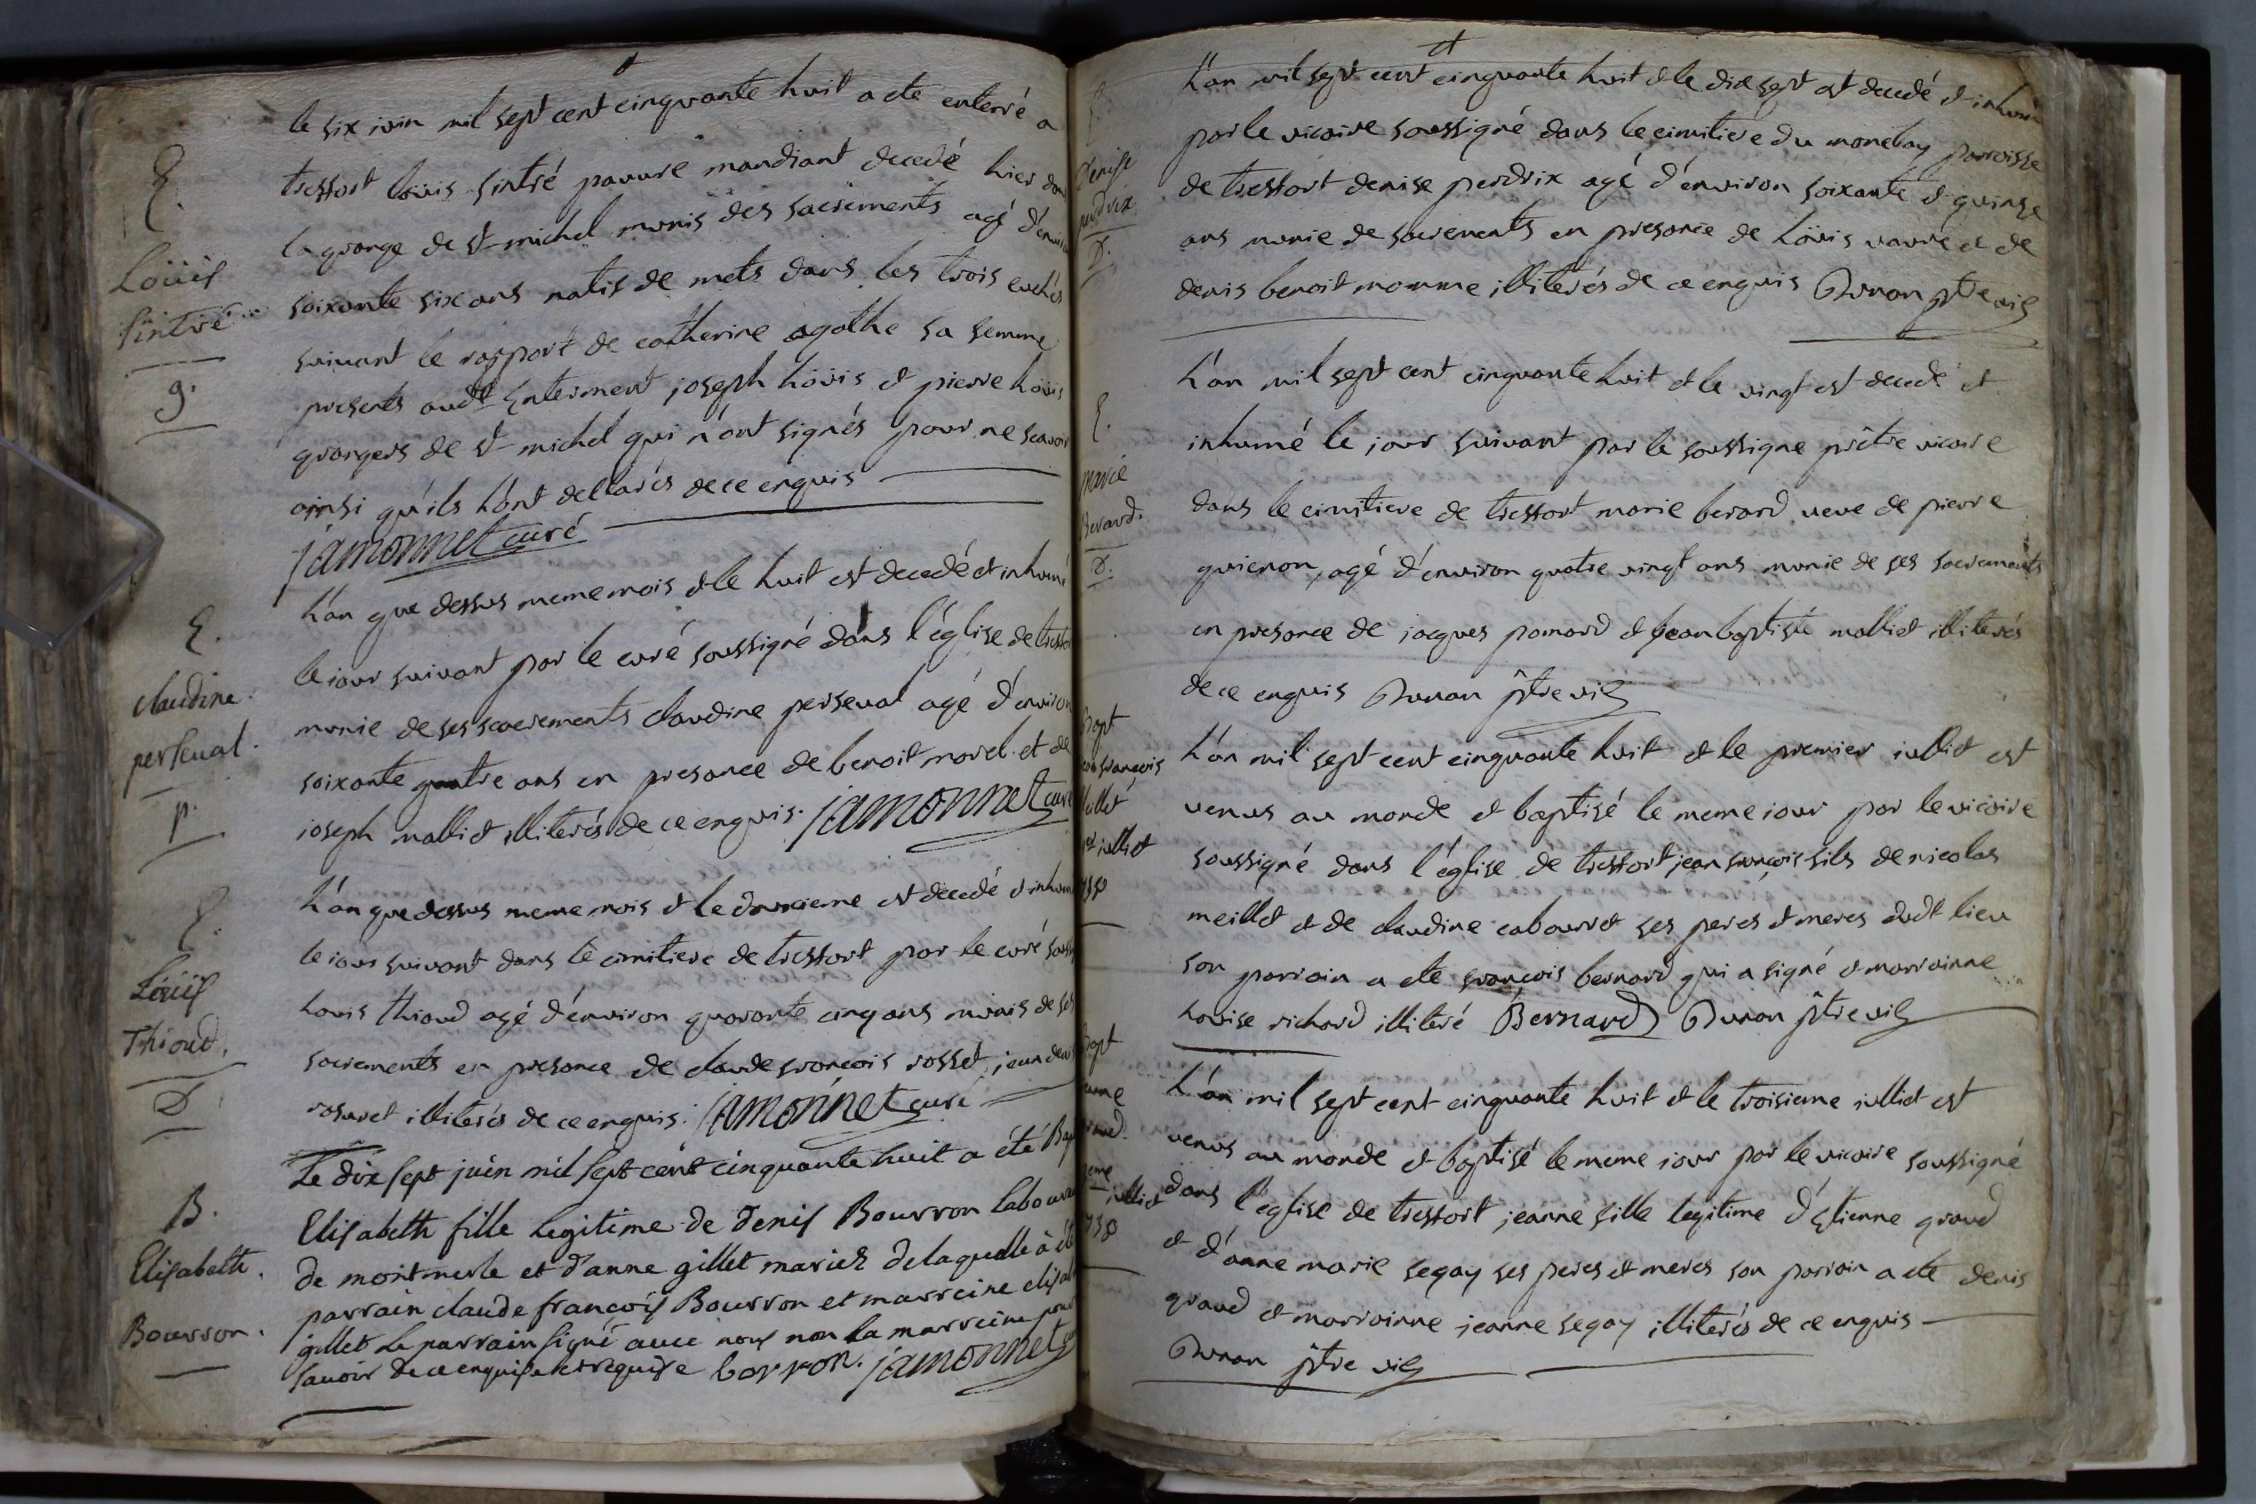 le six juin mil sept cent cinquante huit a ete enterré a
E.
tressort loüis sintré pauure mandiant decedé hier dans
Loüis
Sintré
g.
la grange de st michel munis des sacrements agé d'environ
soixante six ans natif de mets dans les trois euchés
suiuant le rapport de catherine agathe sa femme
presents audt Enterment joseph loüis et pierre loüis
grangers de st michel qui n'ont signés pour ne scauoir
ainsi qu'ils l'ont dellarés de ce enquis
jamonnet curé
E.
claudine
perseual.
p.
L'an que dessus meme mois et le huit est decedé et inhumé
le iour suiuant par le curé soussigné dans l'église de tressort
munie de ses sacrements claudine perseual agé d'environ
soixante quatre ans en presance de benoit morel et de
ioseph malliet illiterés de ce enquis. jamonnet curé
E.
Loüis
Thioud.
D.
L'an que dessus meme mois et le douzieme est decedé et inhumé
le iour suiuant dans le cimitiere de tressort par le curé
louis thioud agé d'environ quarante cinq ans munis de ses
sacrements en presance de claude francois rosset, jean
rosuret illiterés de ce enquis. jamonnet curé
B.
Elisabeth.
Bourron.
Le dix sept juin mil sept cent cinquante huit a été
Elisabeth fille legitime de denis Bourron
de montmerle et d'anne gillet mariés de laquelle a été
parrain claude françois Bourron et marreine
gillet le parrain signé auec nous non la marreine pour
sauoir de ce enquise et requise borron. jamonnet
Denise
perdrix
D.
L'an mil sept cent cinquante huit et le dix sept est decedé et inhumé
par le vicaire soussigné dans le cimitiere du monelay parroisse
de tressort denise perdrix agé d'environ soixante et quinze
ans munie de sacrements en presance de loüis et de
denis benoit momme illiterés de ce enquis Buron ptre vic
E.
marie
Berard.
D.
L'an mil sept cent cinquante huit et le vingt est decedé et
inhumé le jour suivant par le soussigne prêtre vicaire
dans le cimitiere de tressort marie berard veue de pierre
guienon, agé d'environ quatre vingt ans munie de ses sacrements
en presance de jacques pomard et jean baptiste malliet illiterés
de ce enquis Buron ptre vic
Bapt
francois
illiet
758
L'an mil sept cent cinquante huit et le premier iulliet est
venus au monde et baptisé le meme iour par le vicaire
soussigné dans l'église de tressort jean francois fils de nicolas
meillet et de claudine cabourret ses peres et meres dudt lieu
son parrain a ete francois bernard qui a signé et marrainne
louise richard illiteré Bernard Buron ptre vic
Bapt
iulliet
758
L'an mil sept cent cinquante huit et le troisieme iulliet est
venus au monde et baptisé le meme iour par le vicaire soussigné
dans l'eglise de tressort jeanne fille legitime d'Etienne graud
et d'anne marie segay ses peres et meres son parrain a ete denis
graud et marrainne jeanne segay illiterés de ce enquis
Buron ptre vic